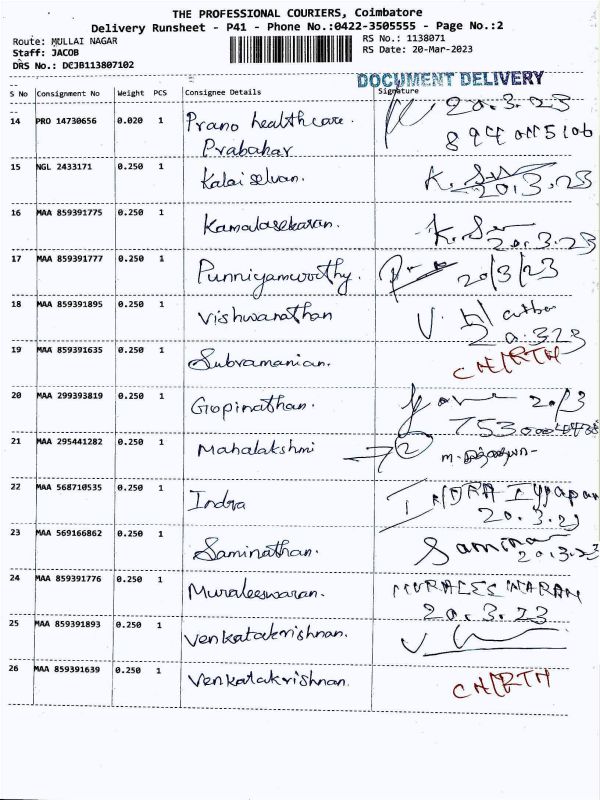 THE PROFESSIONAL COURIERS, Coimbatore
Delivery Runsheet - P41 - Phone No.:0422-3505555 - Page No.:2
Route: MULLAI NAGAR
Staff: JACOB
DRS No.: DEJB113807102
RS No.: 1138071
RS Date: 20-Mar-2023
DOCUMENT DELIVERY
S No Consignment No Weight PCS Consignee Details Signature
14 PRO 14730656 0.020 1 Prano healthcare. 20.3.23
Prabahar
15 NGL 2433171 0.250 1 Kalaiselvan. 20.3.23
16 MAA 859391775 0.250 1 Kamalasekaran. 20.3.23
17 MAA 859391777 0.250 1 Punniyamoorthy. 20/3/23
18 MAA 859391895 0.250 1 Vishwanathan 20.3.23
19 MAA 859391635 0.250 1 Subramanian.
20 MAA 299393819 0.250 1 Gopinathan. 20/3
21 MAA 295441282 0.250 1 Mahalakshmi 2
22 MAA 568710535 0.250 1 Indra INDRA Iyyapan
20.3.23
23 MAA 569166862 0.250 1 Saminathan. 20.3.23
24 MAA 859391776 0.250 1 Muraleeswaran. MURALEESWARAN
20.3.23
25 MAA 859391893 0.250 1 Venkatakrishnan.
26 MAA 859391639 0.250 1 Venkatakrishnan.